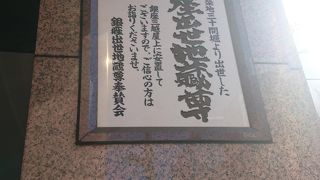 築地三十間堀より出世した
座出世地蔵尊
銀座三越屋上に安置して
ございますので、ご信心の方は
お詣りくださいませ。
銀座出世地蔵尊奉賛会